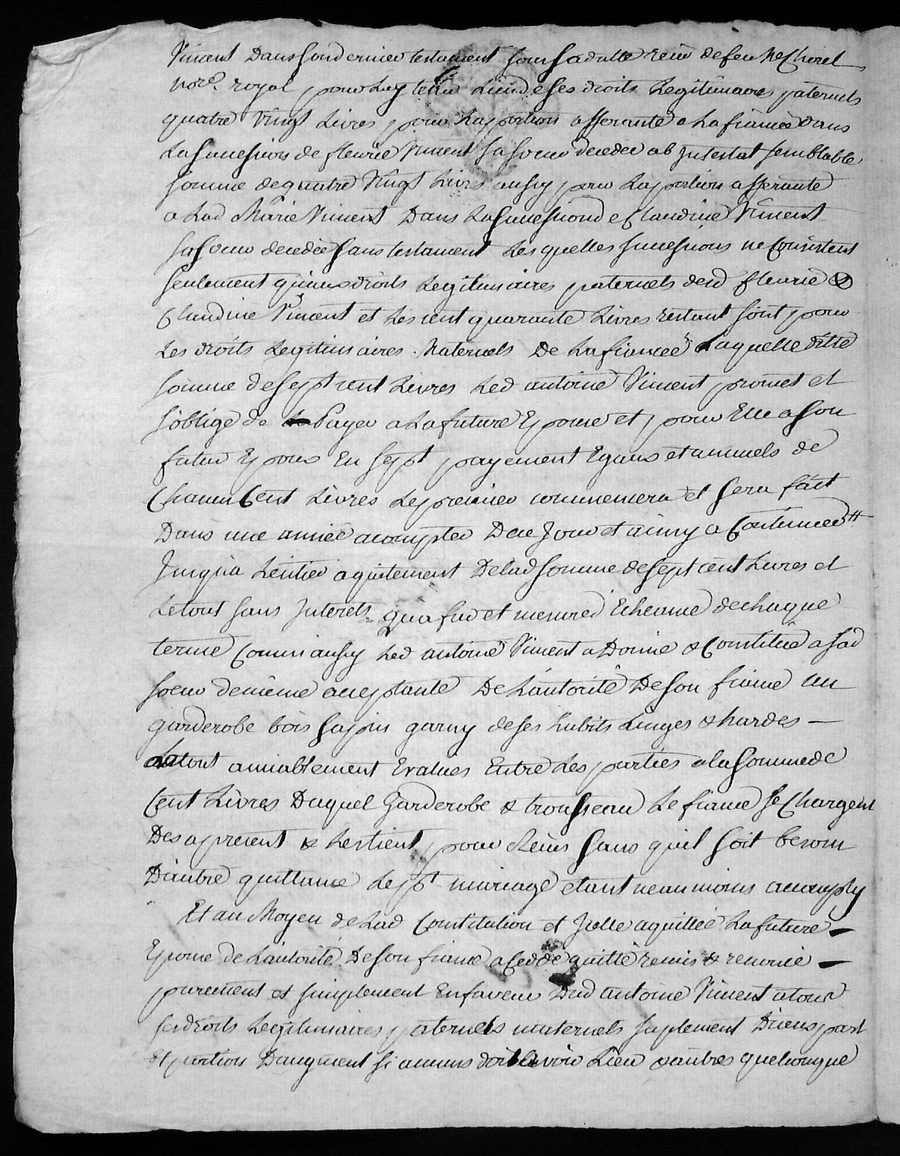 Vincent Dans son dernier testament sous sa datte reçu de feu Me Chorel
nore. royal pour luy tenir Lieu de ses droits Legitimaires paternels
quatre Vingt Livres pour La portion afferante a La fiancée Dans
La succession de fleurie Vincent sa soeur decedée ab Intestat semblable
somme de quatre Vingt Livres aussy pour La portion afferante
a Lad Marie Vincent Dans La succession de Claudine Vincent
sa soeur decedée sans testament Lesquelles successions ne Consistent
seulement qu'aux droits Legitimaires paternels desd fleurie &
Claudine Vincent et Les cent quarante Livres restant sont pour
Les droits Legitimaires Maternels De La fiancée Laquelle ditte
somme de sept cent Livres Led antoine Vincent promet et
s'oblige de Payer a La future Epouse et pour Elle a son
futur Epoux En sept payement Egaux et annuels de
Chacun Cent Livres Le premier commencera et sera fait
Dans une année a compter De ce Jour et ainsy a Continuer
Jusqu'a L'entier aquitement De Lad somme de sept cent Livres et
Le tout sans Interets qu'a fur et mesure d'Echeance de chaque
terme Comm'aussy Led antoine Vincent a Donné & Constitué a sad
soeur de même acceptante De L'autorité De son fiancé un
garderobe bois sapin garny de ses habits Linges & hardes —
Le tout amiablement Evalués Entre Les parties a La somme de
Cent Livres Duquel Garderobe & trousseau Le fiancé se Chargent
Des a present & Les tient pour Reçus sans qu'il soit besoin
D'autre quittance Le pt mariage etant neanmoins accomply
Et au Moyen de Lad Constitution et Icelle aquittée La future —
Epouse de L'autorité De son fiancé a Cedé quitté remis & renoncé —
purement et simplement En faveur Dud antoine Vincent a tous
ses droits Legitimaires paternels maternels suplement D'iceux part
et portion D'augment si aucuns doit avoir Lieu & autres quelconque